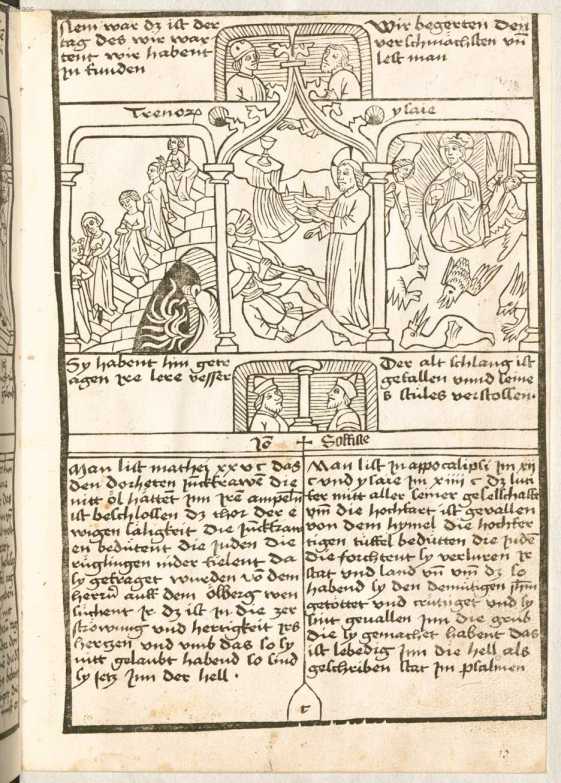 slem war dz ist der
tag des wir war
tent wir habent
in funden
Wir begerten den
verschmächsten vn̄
lest man
Trenorꝫ
ysaie
Sy habent hin getr
agen ire lere vesser
Der alt schlang ist
gefallen vnnd seine
s stiles verstossen.
Jō
Soffiste
Man list mathei xxv c das
den dorheten juckrawē die
nitt öl hattēt jm irē ampeln
ist beschlossen dz thor der e
wigen säligkeit die juckraw
en bedutent die juden die
rügklingen nider vielent da
sy gefraget wurden vō dem
herrn auff dem ölberg wen
suchent ir dz ist in die zer
ströwung vnd hertigkeit irs
hertzen vnd vmb das so sy
nitt gelaubt habend so sind
sy jetz jnn der hell .
Man list in appocalipsi jm xij
c vnd ysaie jm xiiij c dz luci
fer mitt aller seiner gesellschafft
vm̄ die hochfart ist gevallen
von dem hymel die hochfer
tigen tüffel bedütten die judē
die forchtent sy verluren ir
stat vnd land vn̄ vm̄ dz so
habend sy den demütigen jhm
getöttet vnd crutziget vnd sy
sint gevallen jnn die grüb
die sy gemachet habent das
ist lebedig jnn die hell als
geschriben stat jm psalmen
t